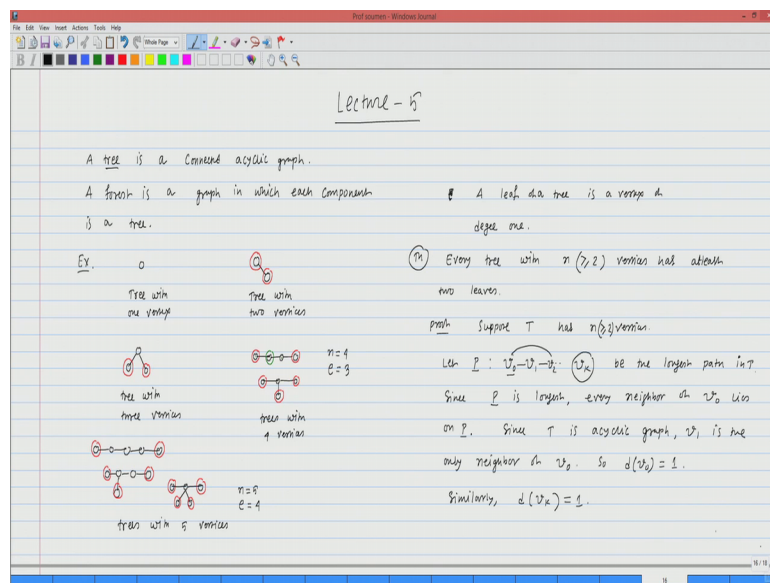 Prof soumen - Windows Journal
File Edit View Insert Actions Tools Help
Whole Page
B I
Lecture - 5
A tree is a connected acyclic graph.
A forest is a graph in which each component
is a tree.
Ex.
Tree with
one vertex
Tree with
two vertices
tree with
three vertices
n = 4
e = 3
trees with
4 vertices
n = 5
e = 4
trees with 5 vertices
A leaf of a tree is a vertex of
degee one.
Th Every tree with n (≥ 2) vertices has atleast
two leaves.
Proof Suppose T has n(≥2) vertices.
Let P : v₀ - v₁ - v₂ ... vₖ be the longest path in T.
Since P is longest, every neighbor of v₀ lies
on P. Since T is acyclic graph, v₁ is the
only neighbor of v₀. So d(v₀) = 1.
Similarly, d(vₖ) = 1.
16 / 18
16